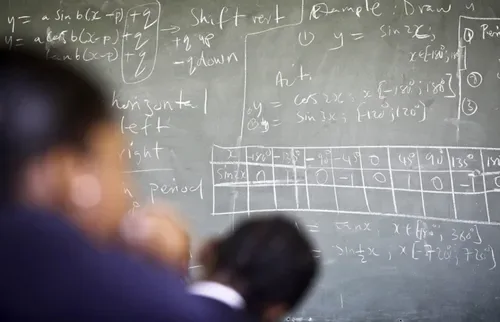 y = a sin b(x-p) + q
y = a cos b(x-p) + q
tan b(x-p) + q
→ Shift vert
+q up
-q down
horizontal
left
right
period
Example: Draw
① y = sin 2x;
x ∈ [-180°; 180°]
Act.
y = cos 2x : x [-180°; 180°]
y = sin 3x : [-120°; 120°]
①
②
③
x -180° -135° -90° -45° 0 45° 90° 135°
sin 2x 0 1 0 -1 0 1 0 -1 0
= sin x : x [; 360°]
= sin ½ x, x [-720°; 720°]